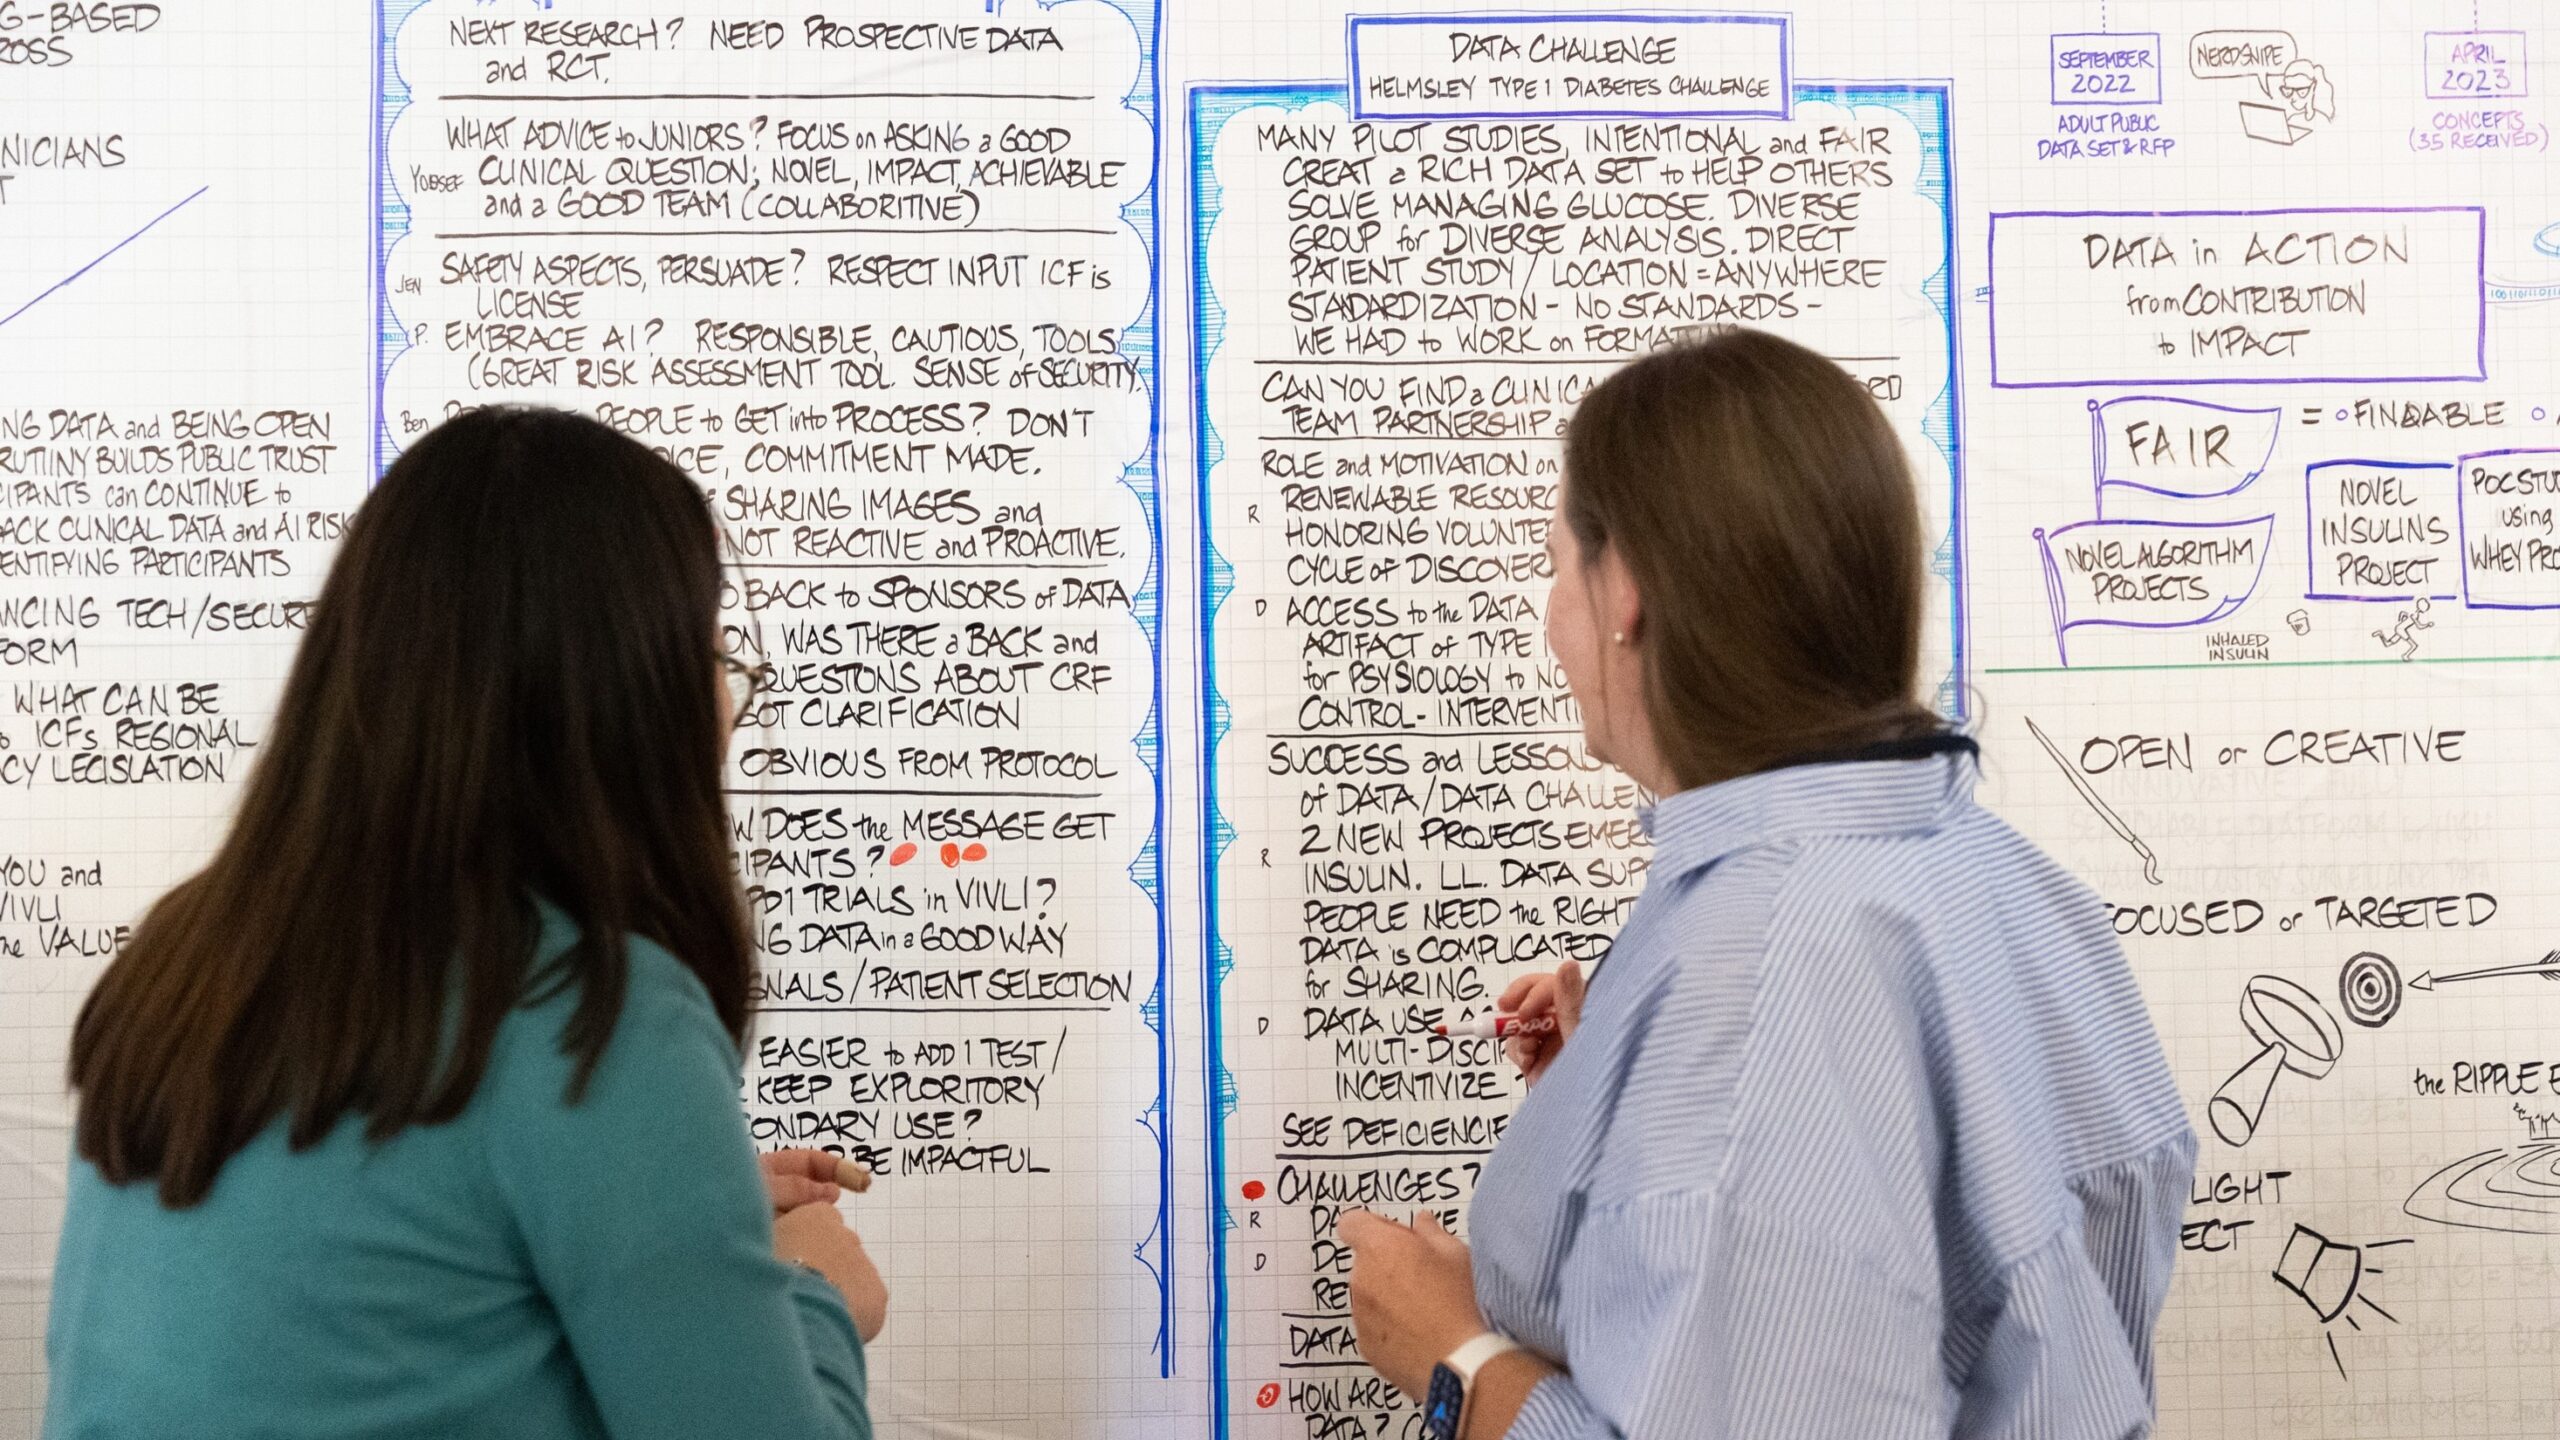 G-BASED
ROSS
NICIANS
T
NG DATA and BEING OPEN
RUTINY BUILDS PUBLIC TRUST
CIPANTS can CONTINUE to
ACK CLINICAL DATA and AI RISK
ENTIFYING PARTICIPANTS
ANCING TECH/SECURE
FORM
WHAT CAN BE
o ICFs REGIONAL
CY LEGISLATION
YOU and
VIVLI
he VALUE
NEXT RESEARCH? NEED PROSPECTIVE DATA
and RCT.
WHAT ADVICE to JUNIORS? FOCUS on ASKING a GOOD
Yousef CLINICAL QUESTION; NOVEL, IMPACT, ACHIEVABLE
and a GOOD TEAM (COLLABORITIVE)
JEN SAFETY ASPECTS, PERSUADE? RESPECT INPUT ICF is
LICENSE
P. EMBRACE AI? RESPONSIBLE, CAUTIOUS, TOOLS
(GREAT RISK ASSESSMENT TOOL. SENSE of SECURITY.
Ben PEOPLE to GET into PROCESS? DON'T
ICE, COMMITMENT MADE.
SHARING IMAGES and
NOT REACTIVE and PROACTIVE.
O BACK to SPONSORS of DATA
ON, WAS THERE a BACK and
QUESTIONS ABOUT CRF
GOT CLARIFICATION
OBVIOUS FROM PROTOCOL
W DOES the MESSAGE GET
CIPANTS?
PD1 TRIALS in VIVLI?
NG DATA in a GOOD WAY
GNALS/PATIENT SELECTION
EASIER to ADD 1 TEST/
KEEP EXPLORITORY
ONDARY USE?
BE IMPACTFUL
DATA CHALLENGE
HELMSLEY TYPE 1 DIABETES CHALLENGE
MANY PILOT STUDIES, INTENTIONAL and FAIR
CREAT a RICH DATA SET to HELP OTHERS
SOLVE MANAGING GLUCOSE. DIVERSE
GROUP for DIVERSE ANALYSIS. DIRECT
PATIENT STUDY/LOCATION = ANYWHERE
STANDARDIZATION - NO STANDARDS -
WE HAD to WORK on FORMATTING
CAN YOU FIND a CLINICA ORD
TEAM PARTNERSHIP a
ROLE and MOTIVATION on
R RENEWABLE RESOURC
HONORING VOLUNTE
CYCLE of DISCOVER
D ACCESS to the DATA
ARTIFACT of TYPE 1
for PSYSIOLOGY to NO
CONTROL - INTERVENTI
SUCCESS and LESSONS
of DATA/DATA CHALLEN
R 2 NEW PROJECTS EMERG
INSULIN. LL. DATA SUP
PEOPLE NEED the RIGHT
DATA is COMPLICATED
for SHARING.
D DATA USE
MULTI-DISCIP
INCENTIVIZE
SEE DEFICIENCIE
CHALLENGES?
R
D DE
RE
DATA
HOW ARE
DATA?
EXPO
SEPTEMBER
2022
ADULT PUBLIC
DATA SET & RFP
NERDSNIPE
APRIL
2023
CONCEPTS
(35 RECEIVED)
DATA in ACTION
from CONTRIBUTION
to IMPACT
FAIR = FINDABLE
NOVEL ALGORITHM
PROJECTS
NOVEL
INSULINS
PROJECT
POC STU
using
WHEY PRO
INHALED
INSULIN
OPEN or CREATIVE
FOCUSED or TARGETED
the RIPPLE E
LIGHT
ECT